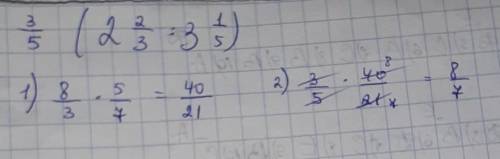 3/5 (2 2/3 : 3 1/5)
1) 8/3 · 5/7 = 40/21 2) 3/5 · 40 8/21 7 = 8/7